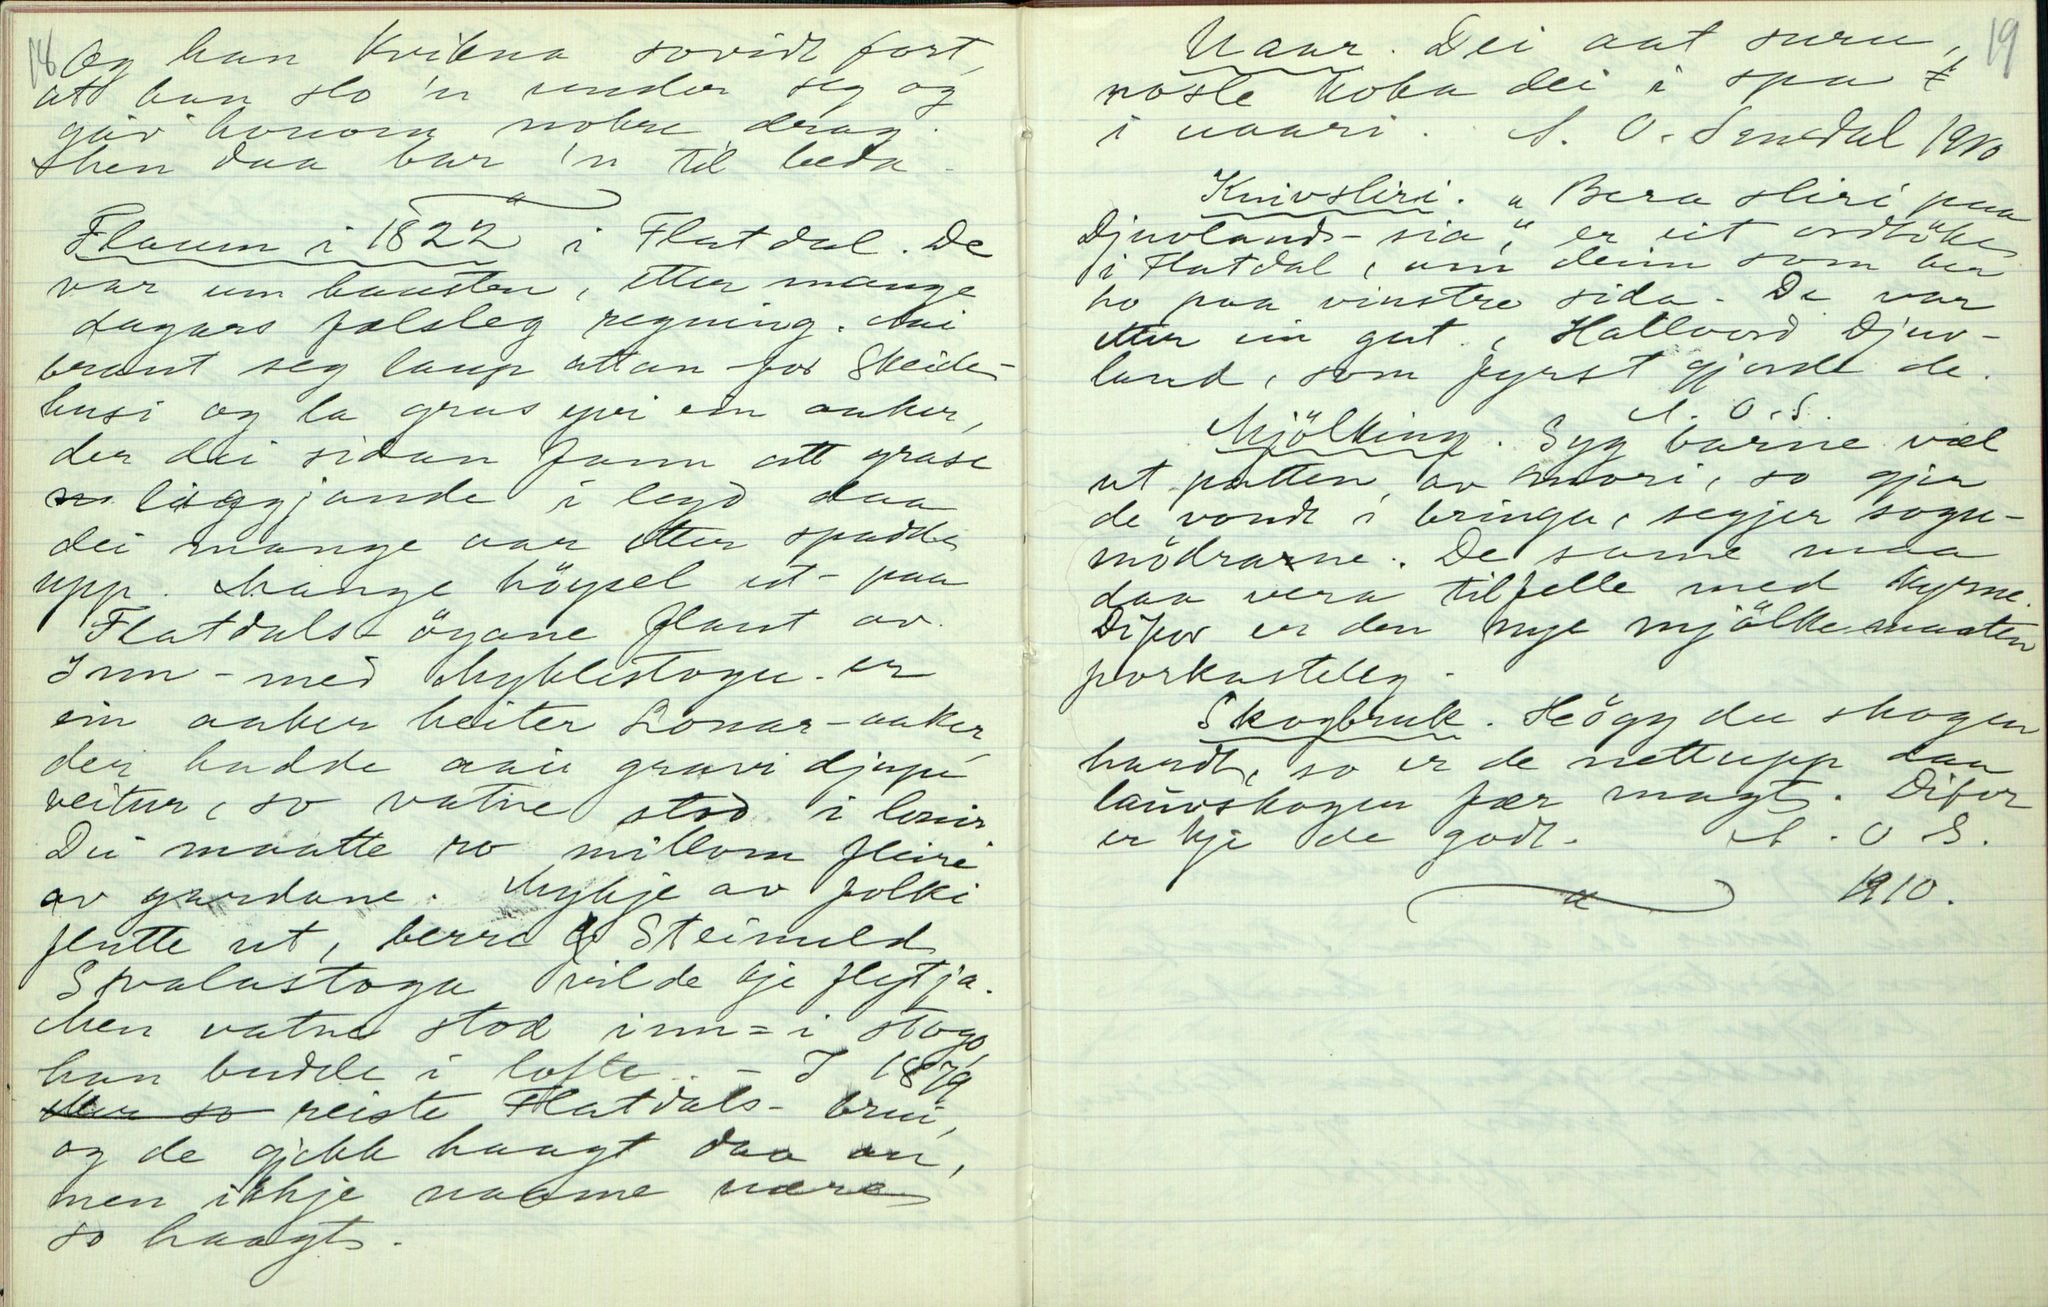 18
Og han kvikna sovidt fort,
att han slo 'n under seg og
gav honom nokre drag.
Men daa bar 'n til beda.
Flaum i 1822 i Flatdal. De
var um hausten, etter mange
dagars fælsleg regning. Aai
braut seg laup attan-for Skeide-
husi og la grus yvi ein aaker,
der dei sidan fann att grase
liggjande i legd daa
dei mange aar etter spadde
upp. Mange höysel ut-paa
Flatdals-öyane flaut av.
Inn-med Myklestogu er
ein aaker heiter Lonar-aaker,
der hadde aai gravi djupe
veitur, so vatne stod i lonir.
Dei maatte ro millom fleire
av gardane. Mykje av folki
flutte ut, berre Steinuld
Svalastoga vilde kje flytja.
Men vatne stod inn=i stogo,
han budde i lofte. - I 1879
reiste Flatdals-brui,
og de gjekk haagt daa au,
men ikkje naame nære
so haagt.
19
Naar. Dei aat suru,
noste koka dei i spa
i naari. N. O. Smedal 1910
Knivsliri. "Bera sliri paa
Djuvlands-sia", er eit ordtöke
i Flatdal, um deim som ber
ho paa vinstre sida. De var
etter ein gut, Hallvord Djuv-
land, som fyrst gjorde de.
N. O. S.
Mjölking. Syg barne væl
ut patten av mori, so gjer
de vondt i bringa, segjer sogu-
mödrane. De same maa
daa vera tilfelle med kyrne.
Difor er den nye mjölkemaaten
forkasteleg.
Skogbruk. Högg du skogen
hardt, so er de nettupp daa
lauvskogen fær magt. Difor
er kje de godt. N. O. S.
1910.